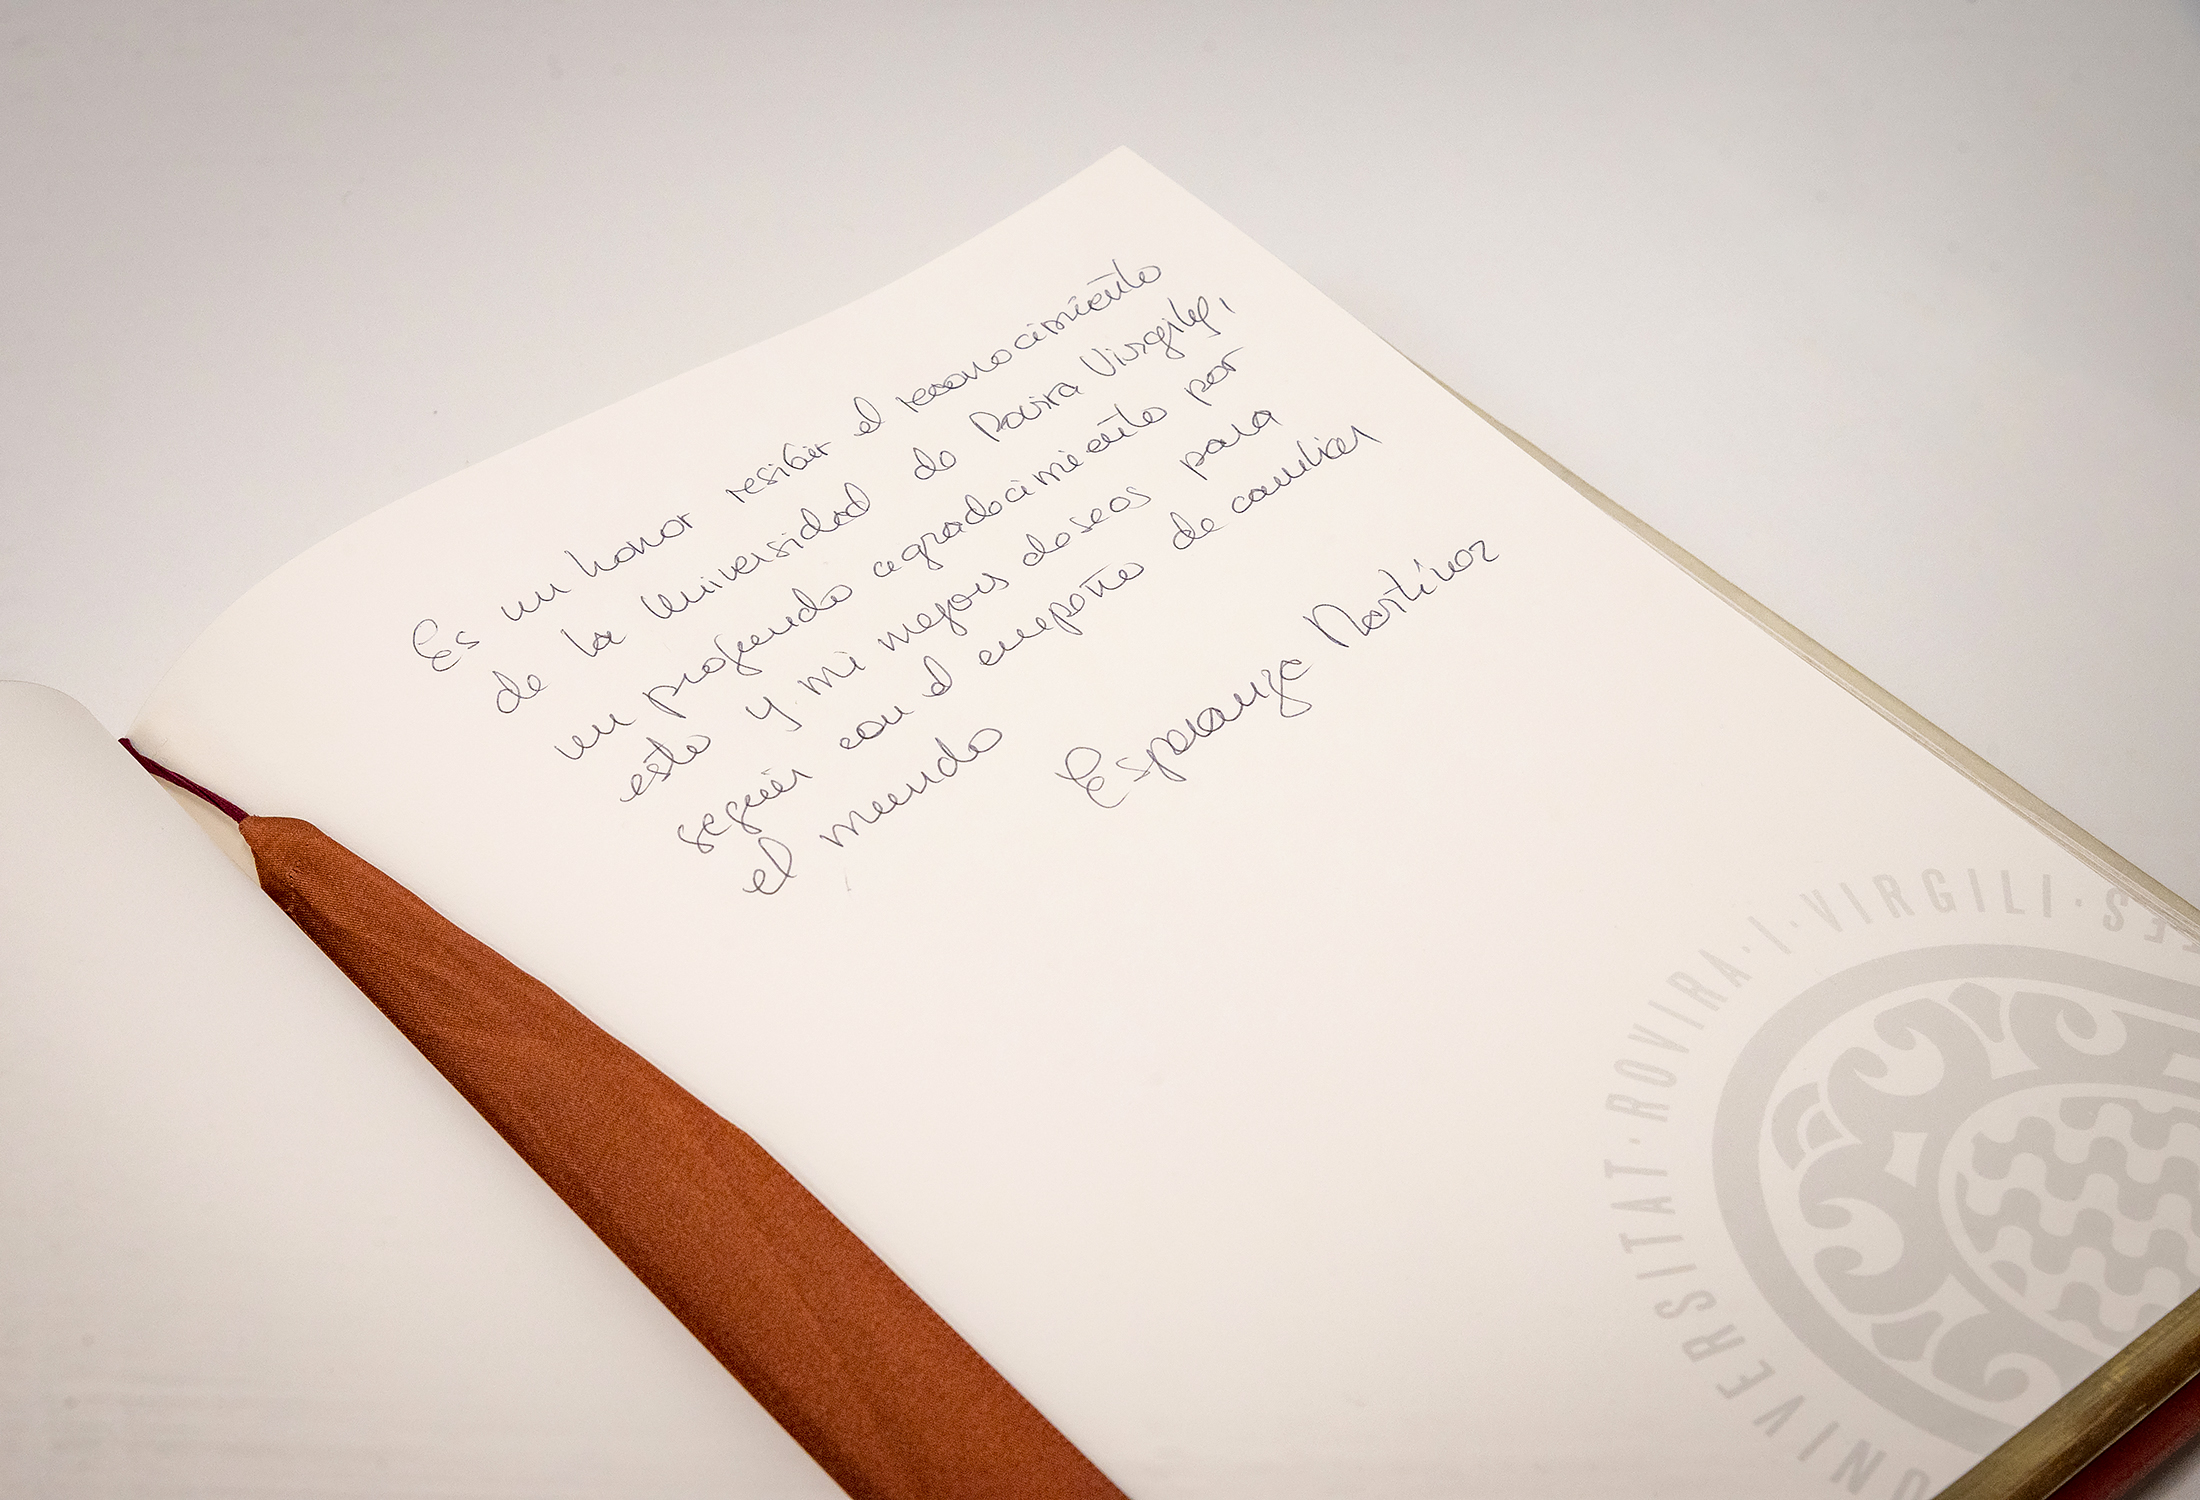 Es un honor resibir el reconocimiento
de la Universidad de Rovira Virgily,
un profundo agradecimiento por
esto y mi mejores deseos para
seguir con el empeño de cambiar
el mundo
Esperanza Martínez
UNIVERSITAT · ROVIRA · I · VIRGILI ·